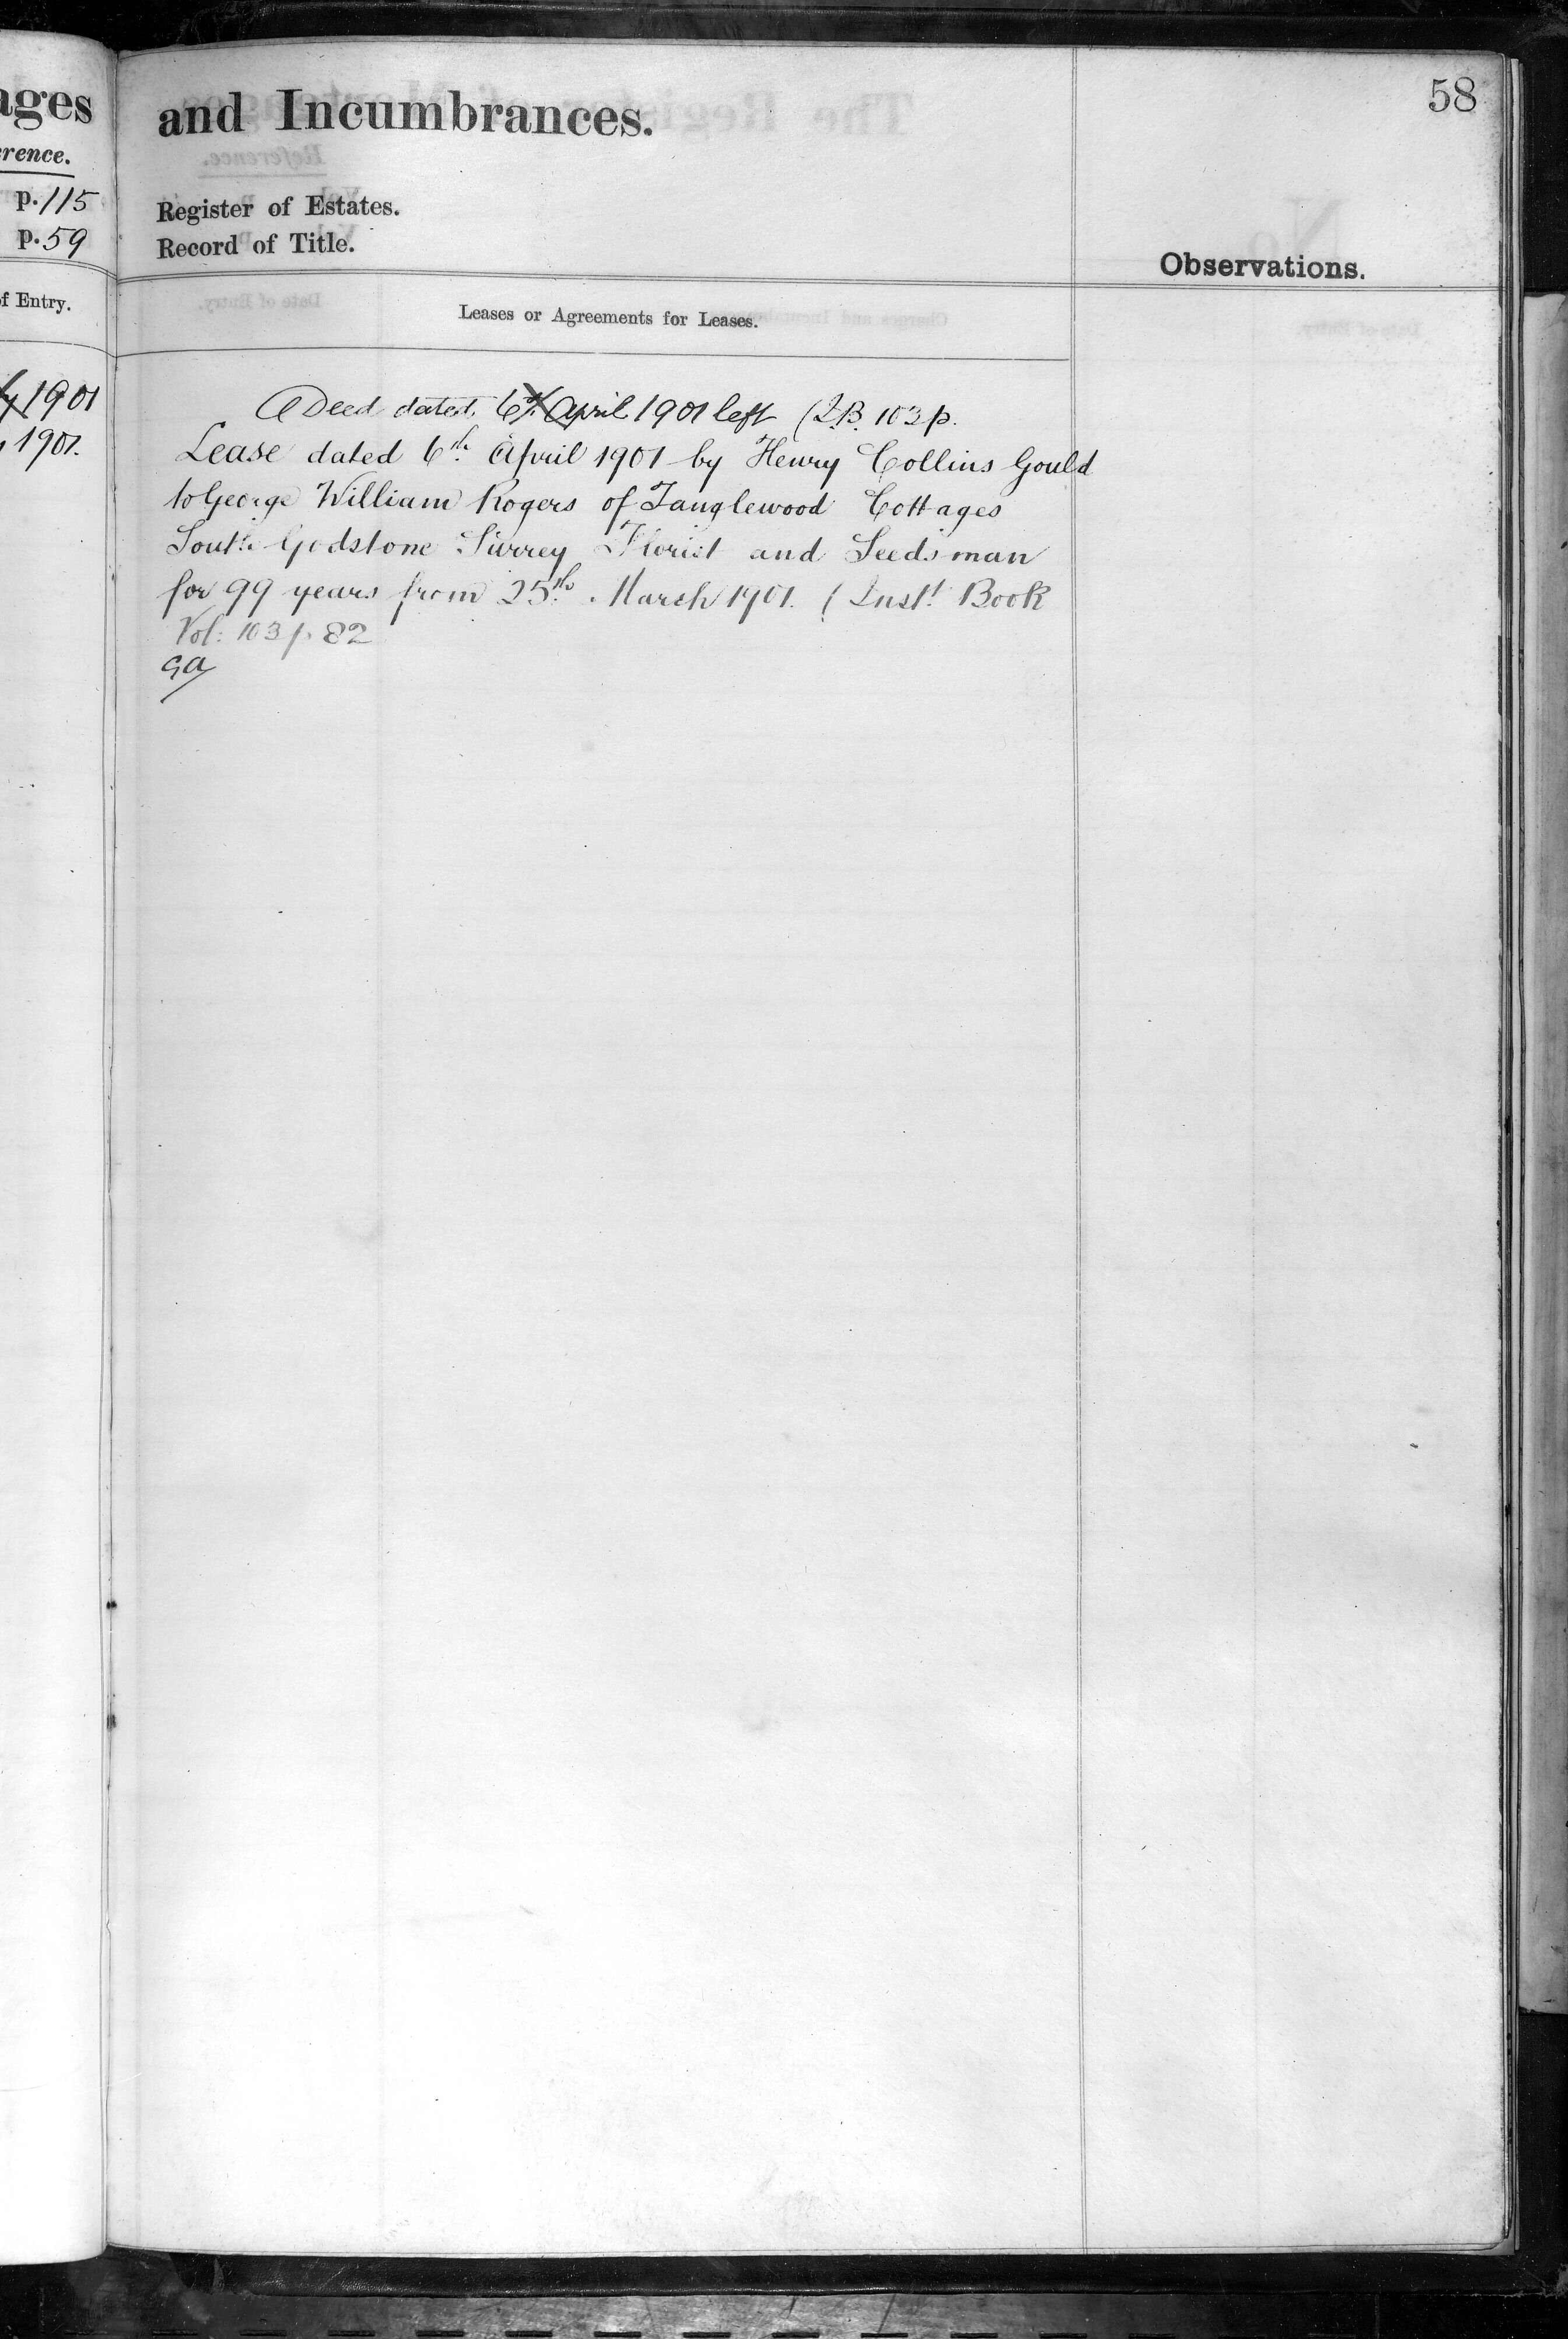 ages
rence.
p. 115
p. 59
of Entry.
1901
1901.
58
and Incumbrances.
Register of Estates.
Record of Title.
Observations.
Leases or Agreements for Leases.
A Deed dated 6th April 1901 left (I.B. 103 p.
Lease dated 6th April 1901 by Henry Collins Gould
to George William Rogers of Tanglewood Cottages
South Godstone Surrey Florist and Seedsman
for 99 years from 25th March 1901. (Inst. Book
Vol: 103 p. 82
GA